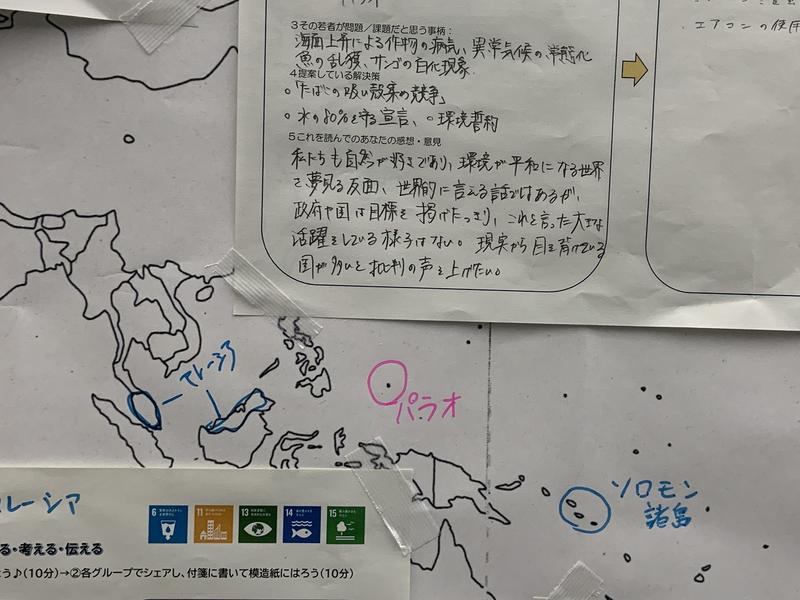 パラオ
3 その若者が問題／課題だと思う事柄：
海面上昇による作物の病気、異常気候の常態化
魚の乱獲、サンゴの白化現象
4 提案している解決策
○「たばこの吸い殻集め競争」
○水の80%を守る宣言、○環境誓約
5 これを読んでのあなたの感想・意見
私たちも自然が好きであり、環境が平和になる世界
を夢見る反面、世界的に言える話ではあるが、
政府や国は目標を掲げたっきり、これと言った大きな
活躍をしている様子はない。現実から目を背けている
国が多いと批判の声を上げたい。
エアコンの使用
マレーシア
パラオ
ソロモン
諸島
レーシア
6
11
13
14
15
る・考える・伝える
う♪(10分)→②各グループでシェアし、付箋に書いて模造紙にはろう(10分)